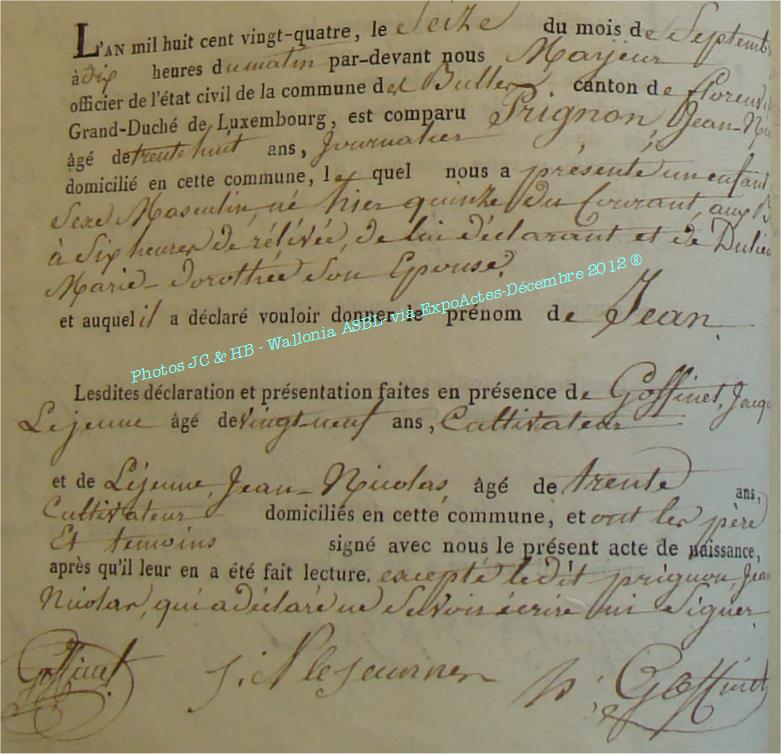 L'AN mil huit cent vingt-quatre, le Seize du mois de Septemb
à dix heures du matin par-devant nous Mayeur
officier de l'état civil de la commune de canton de florenv
Grand-Duché de Luxembourg, est comparu Prignon, Jean-Nic
âgé de trente huit ans, Journalier
domicilié en cette commune, le quel nous a présenté un enfant
Sexe Masculin, né hier quinze du Courant, aux
à Six heures de rélévée, de lui déclarant et de
Marie-dorothée Son Epouse.
et auquel il a déclaré vouloir donner le prénom de Jean.
Photos JC & HB - Wallonia ASBL -via- ExpoActes-Décembre 2012 ®
Lesdites déclaration et présentation faites en présence de Goffinet, Jacq
Lejeune âgé de vingt neuf ans, Cultivateur
et de Léjeune, Jean-Nicolas, âgé de trente ans,
Cultivateur domiciliés en cette commune, et ont les père
Et temoins signé avec nous le présent acte de naissance,
après qu'il leur en a été fait lecture. excepté ledit prignon Jea
Nicolas, qui a déclaré ne Savoir écrire ni Signer
Goffinet Goffinet